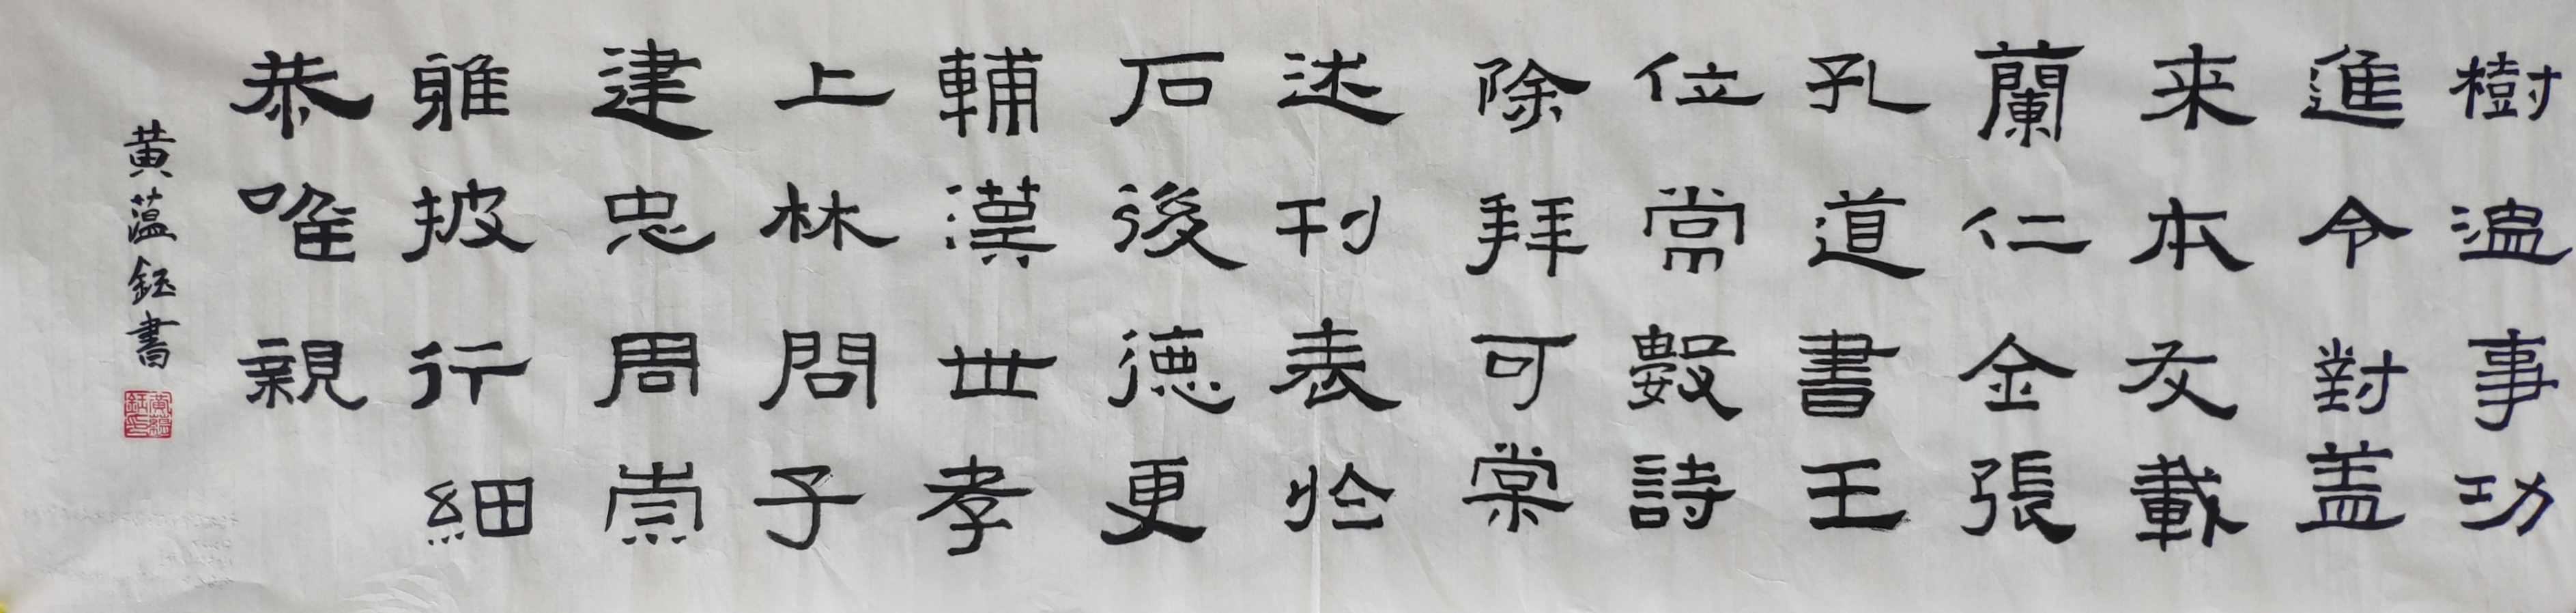 樹温事功
進令對盖
来本友載
蘭仁金張
孔道書王
位常數詩
除拜可棠
述刊表於
石後德更
輔漢世孝
上林問子
建忠周崇
雖披行細
恭唯親
黄薀鈺書